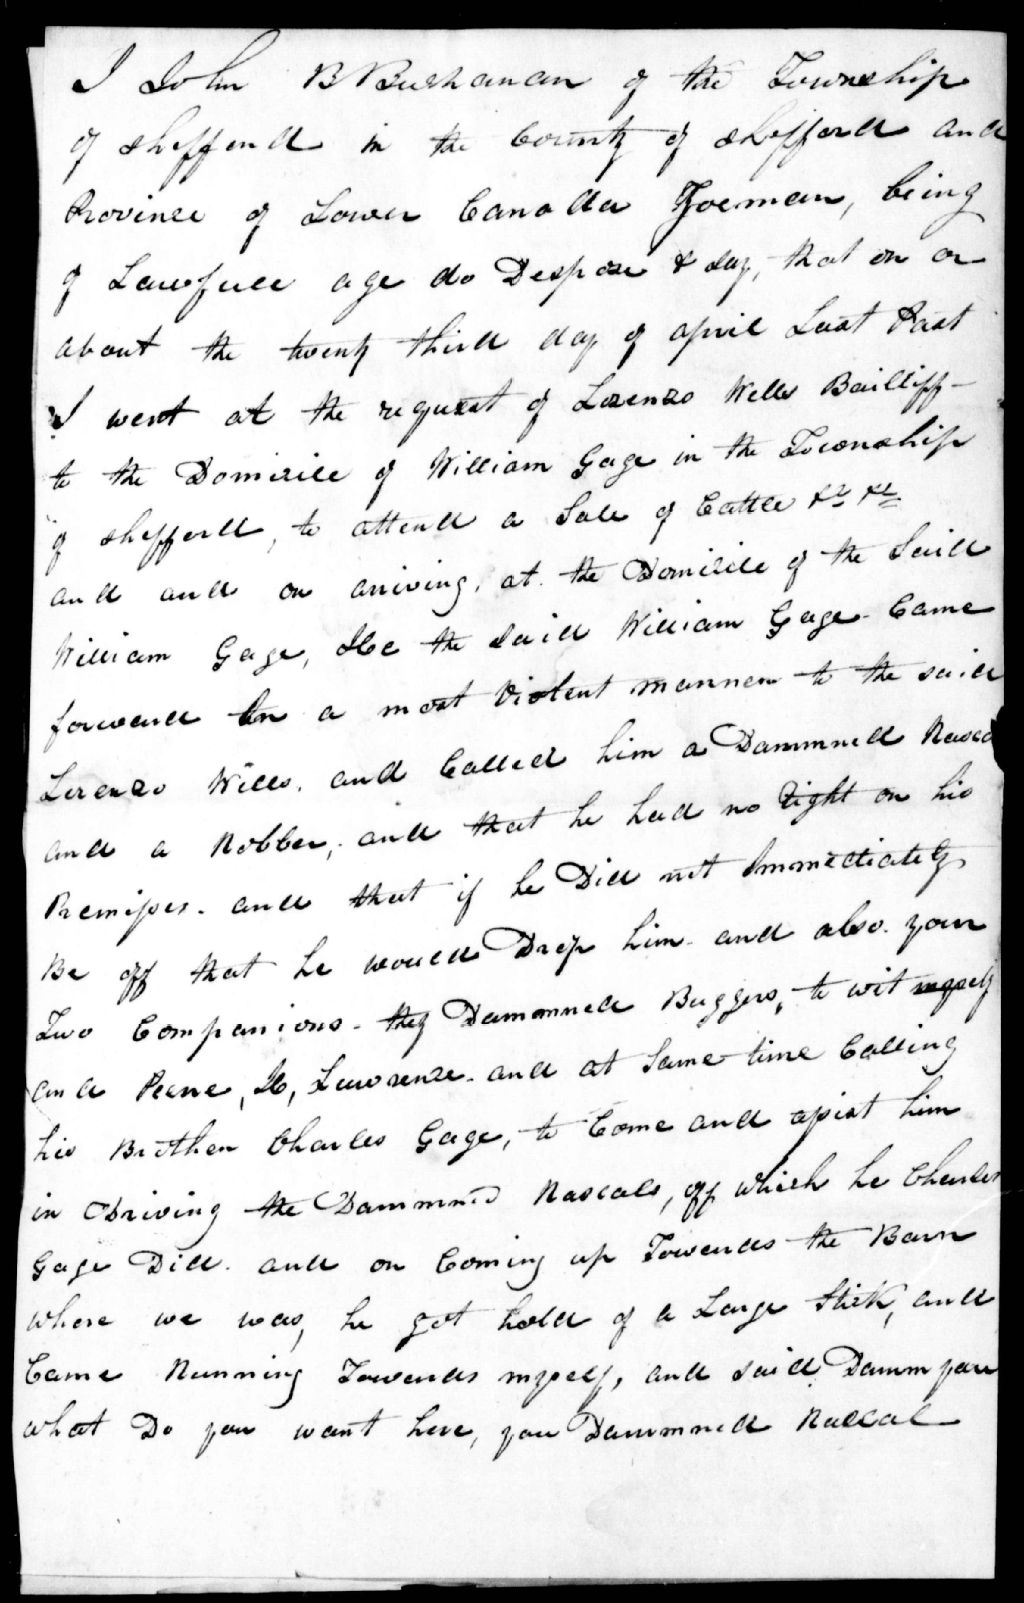 I John B Buchanan of the Township
of Shefford in the County of Shefford and
Province of Lower Canada Yoeman, being
of Lawfull age do Despose & say, that on or
about the twenty third day of april Last Past
I went at the request of Lorenzo Wells Bailliff -
to the Domicile of William Gage in the Township
of Shefford, to attend a Sale of Cattle &c &c
and and on ariving, at the Domicile of the Said
William Gage, He the Said William Gage - Came
forward in a most Violent manner to the said
Lorenzo Wells, and Called him a Dammned Rascal
and a Robber, and that he had no Right on his
Premises. and that if he Did not Immediately
Be off that he would Drop him - and also your
Two Companions - they Dammned Buggers, to wit myself
and Peene, H, Lawrence - and at Same time Calling
his Brother Charles Gage, to Come and assist him
in Driving the Dammned Rascals, off which he Charles
Gage Did. and on Coming up Towards the Barn
where we was, he got hold of a Large Stick, and
Came Running Towards myself, and said Damm you
what Do you want here, you Dammned Rascal